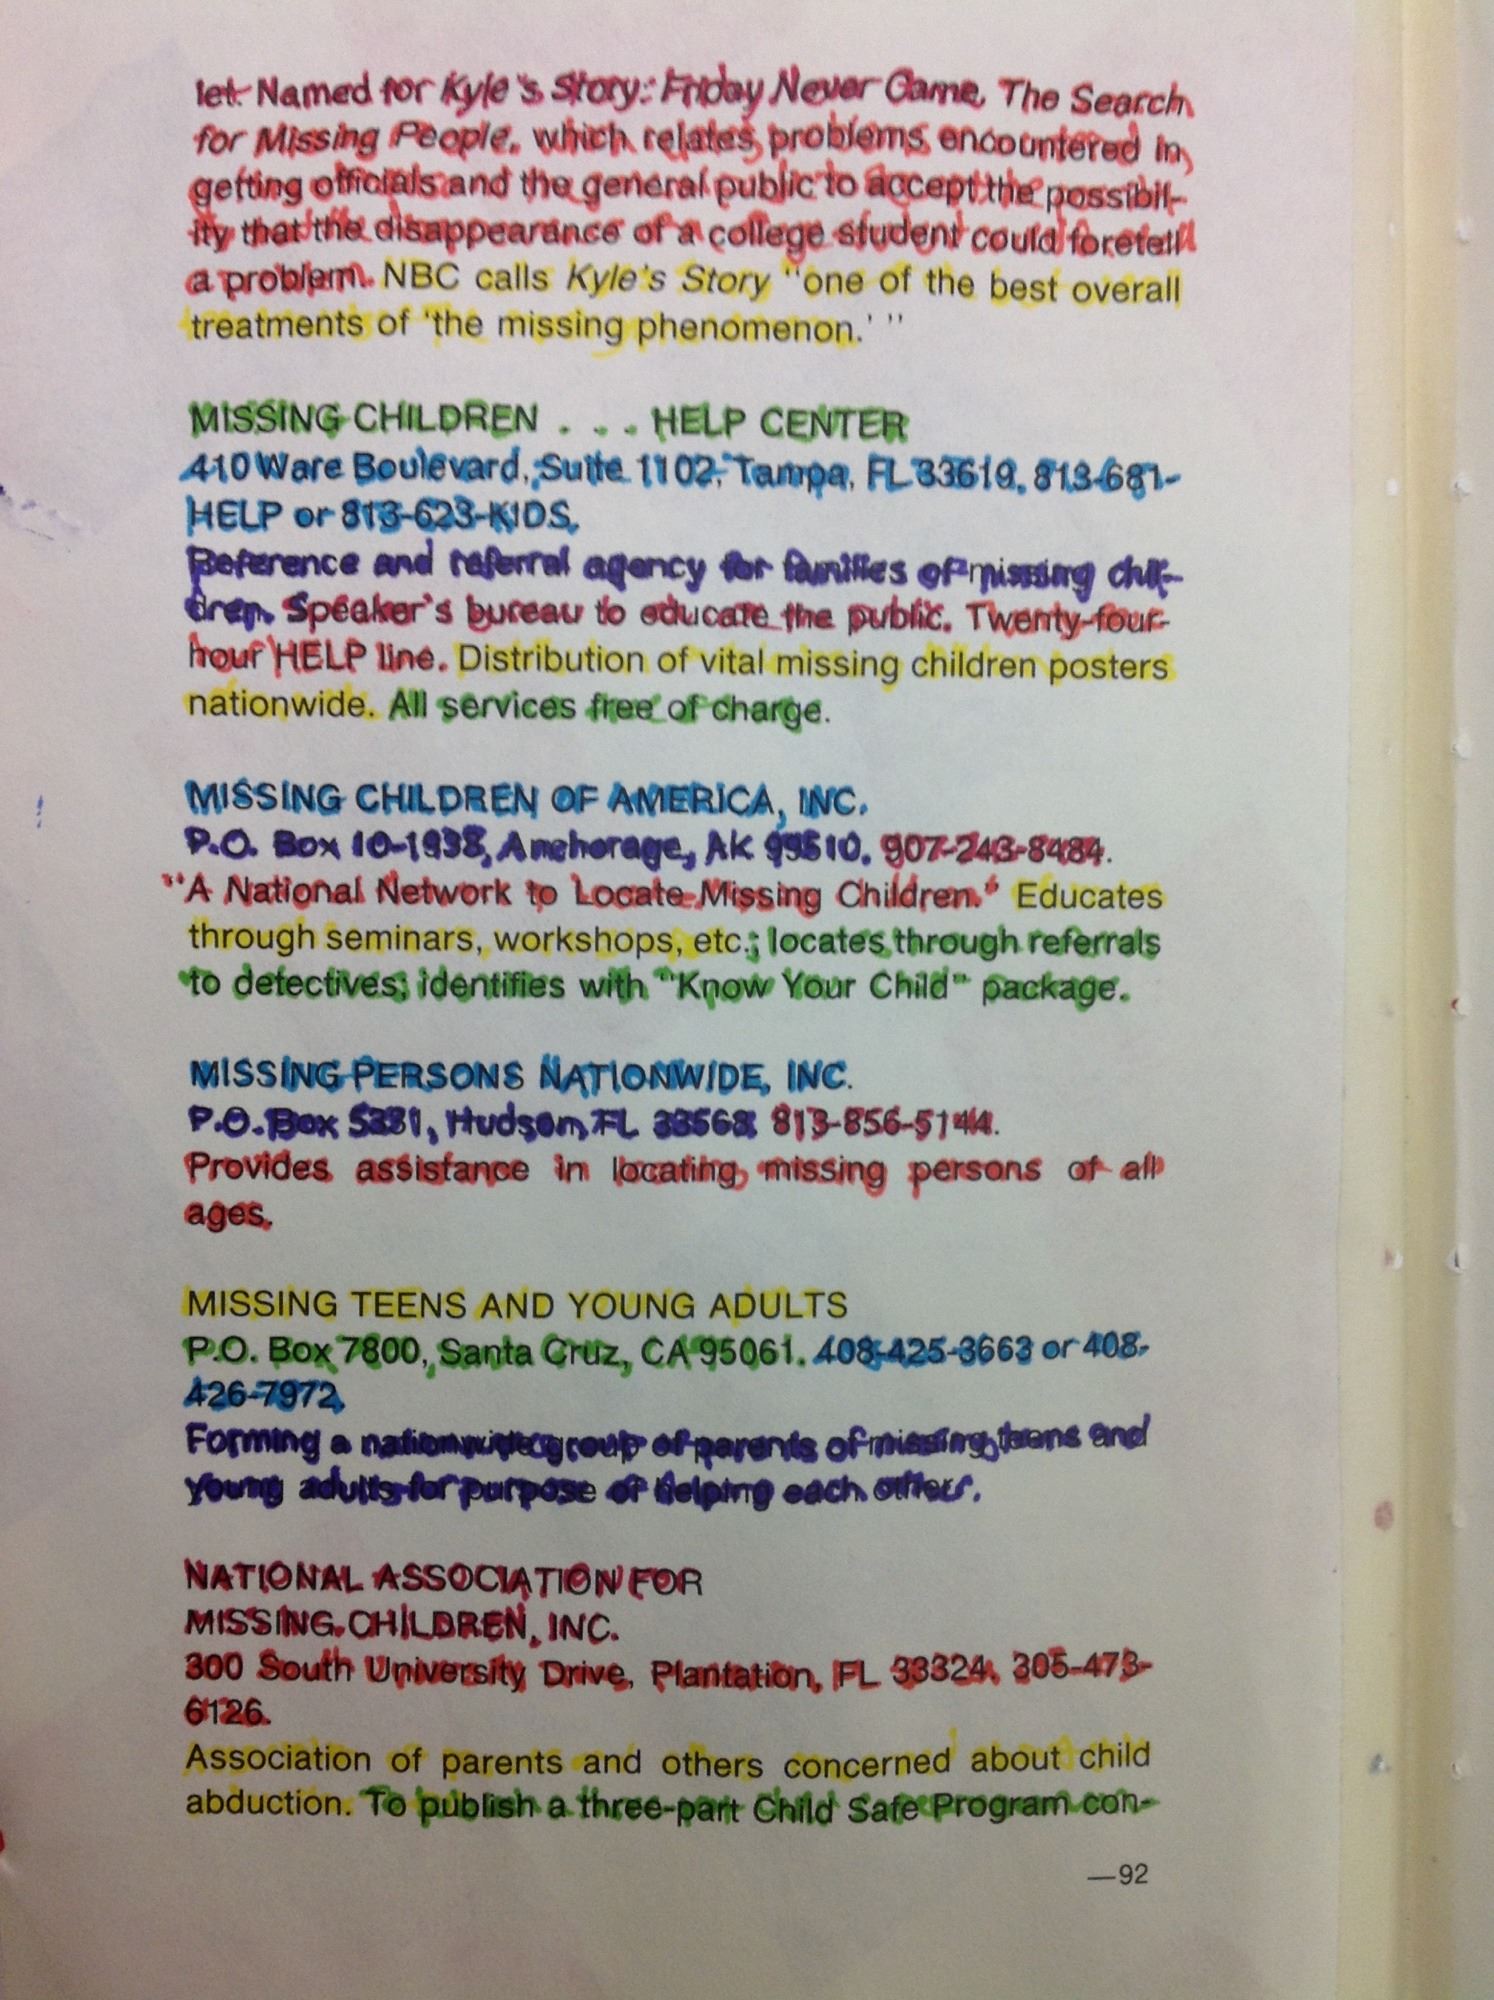 let. Named for Kyle's Story: Friday Never Came, The Search
for Missing People, which relates problems encountered in
getting officials and the general public to accept the possibil-
ity that the disappearance of a college student could foretell
a problem. NBC calls Kyle's Story "one of the best overall
treatments of 'the missing phenomenon.' "
MISSING CHILDREN . . . HELP CENTER
410 Ware Boulevard, Suite 1102, Tampa, FL 33619, 813-681-
HELP or 813-623-KIDS.
Reference and referral agency for families of missing chil-
dren. Speaker's bureau to educate the public. Twenty-four-
hour HELP line. Distribution of vital missing children posters
nationwide. All services free of charge.
MISSING CHILDREN OF AMERICA, INC.
P.O. Box 10-1938, Anchorage, AK 99510, 907-243-8484.
"A National Network to Locate Missing Children." Educates
through seminars, workshops, etc.; locates through referrals
to detectives; identifies with "Know Your Child" package.
MISSING PERSONS NATIONWIDE, INC.
P.O. Box 5331, Hudson, FL 33568 813-856-5144.
Provides assistance in locating missing persons of all
ages.
MISSING TEENS AND YOUNG ADULTS
P.O. Box 7800, Santa Cruz, CA 95061. 408-425-3663 or 408-
426-7972.
Forming a nationwide group of parents of missing teens and
young adults for purpose of helping each other.
NATIONAL ASSOCIATION FOR
MISSING CHILDREN, INC.
300 South University Drive, Plantation, FL 33324. 305-473-
6126.
Association of parents and others concerned about child
abduction. To publish a three-part Child Safe Program con-
—92